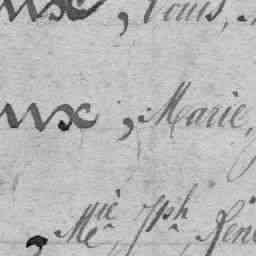 ux, Louis,
ux, Marie,
, Mie, Jph, René